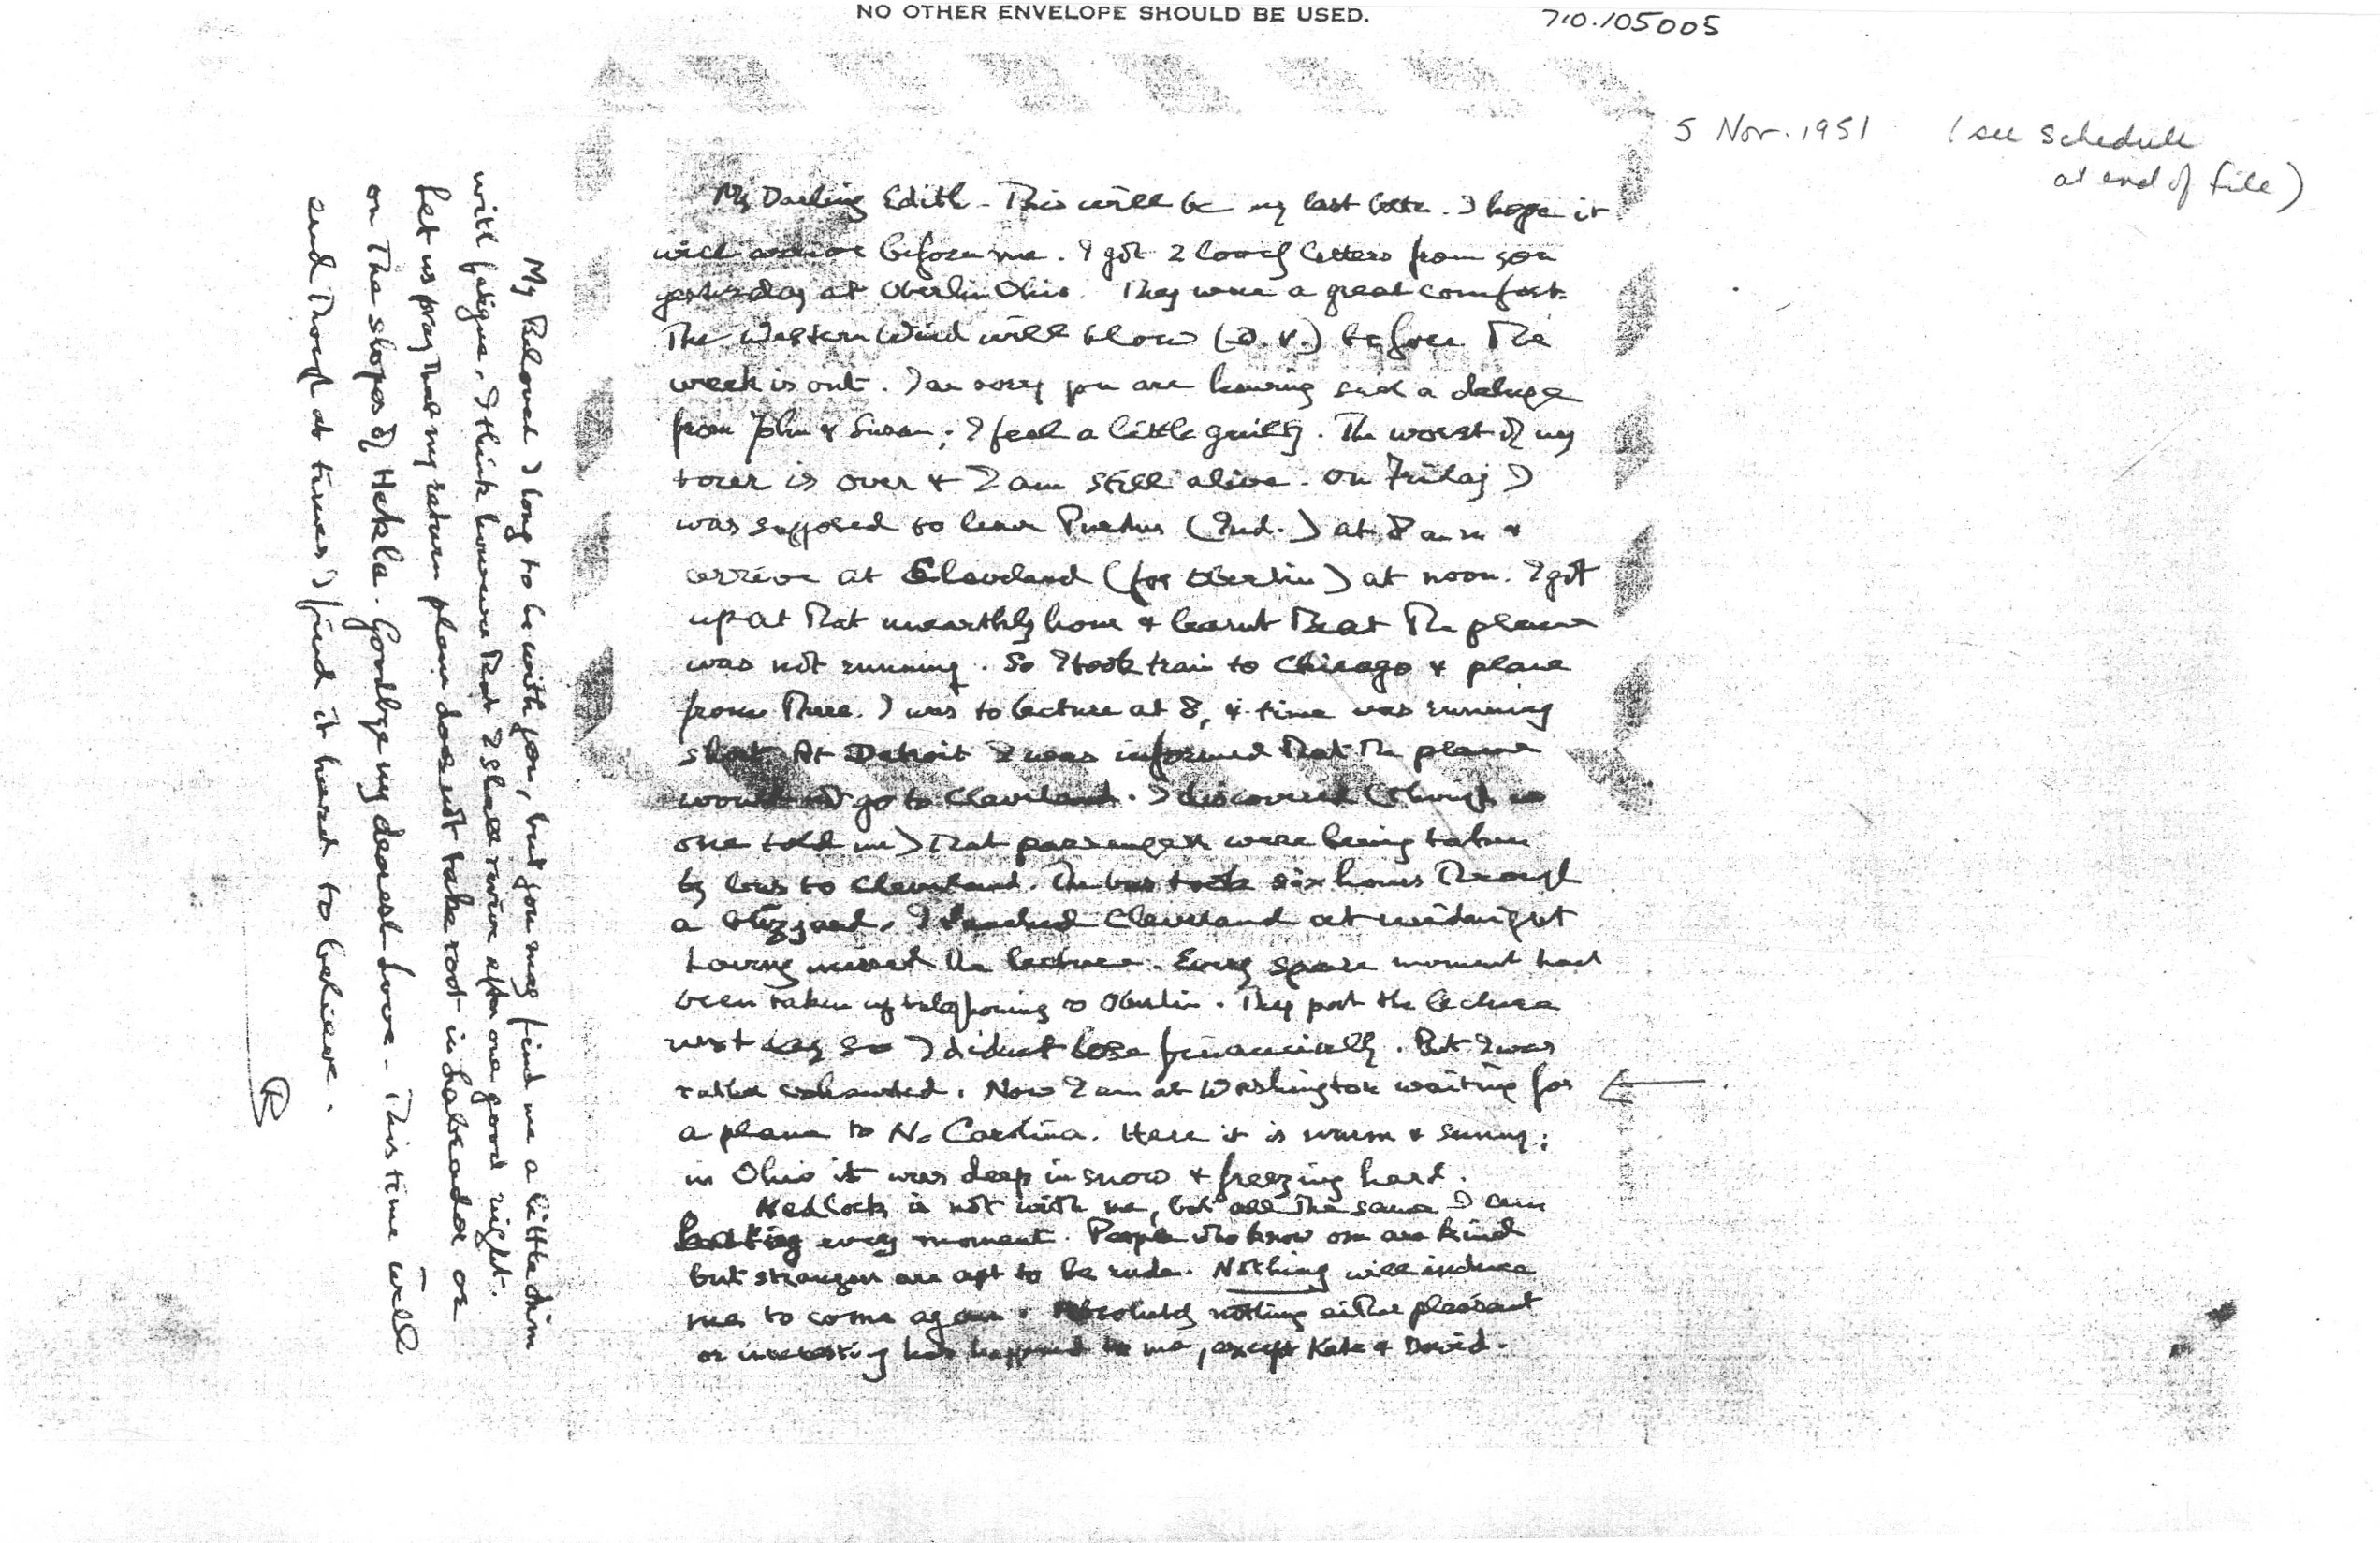 NO OTHER ENVELOPE SHOULD BE USED.
710.105005
5 Nov. 1951 (see schedule
at end of file)
My Darling Edith – This will be my last letter. I hope it
will arrive before me. I got 2 lovely letters from you
yesterday at Oberlin Ohio. They were a great comfort.
The Western Wind will blow (D.V.) before the
week is out. I am sorry you are having such a deluge
from John & Susan; I feel a little guilty. The worst of my
tour is over & I am still alive. On Friday I
was supposed to leave Purdue (Ind.) at 8 a.m &
arrive at Cleveland (for Oberlin) at noon. I got
up at that unearthly hour & learnt that the plane
was not running. So I took train to Chicago & plane
from there. I was to lecture at 8, & time was running
short. At Detroit I was informed that the plane
would not go to Cleveland. I discovered (though no
one told me) that passengers were being taken
by bus to Cleveland. The bus took six hours through
a blizzard. I reached Cleveland at midnight
having missed the lecture. Every spare moment had
been taken up telephoning to Oberlin. They put the lecture
next day so I didn't lose financially. But I was
rather exhausted. Now I am at Washington waiting for
a plane to N. Carolina. Here it is warm & sunny;
in Ohio it was deep in snow & freezing hard.
Nedlock is not with me, but all the same I am
every moment. People who know one are kind
but strangers are apt to be rude. Nothing will induce
me to come again. Absolutely nothing either pleasant
or interesting has happened to me, except Kate & David.
My Beloved I long to be with you, but you may find me a little dim
with fatigue. I think however that I shall revive after one good night.
Let us pray that my return plane does not take root in Labrador or
on the slopes of Hekla. Goodbye my dearest Love – This time will
end though at times I find it hard to believe.
R